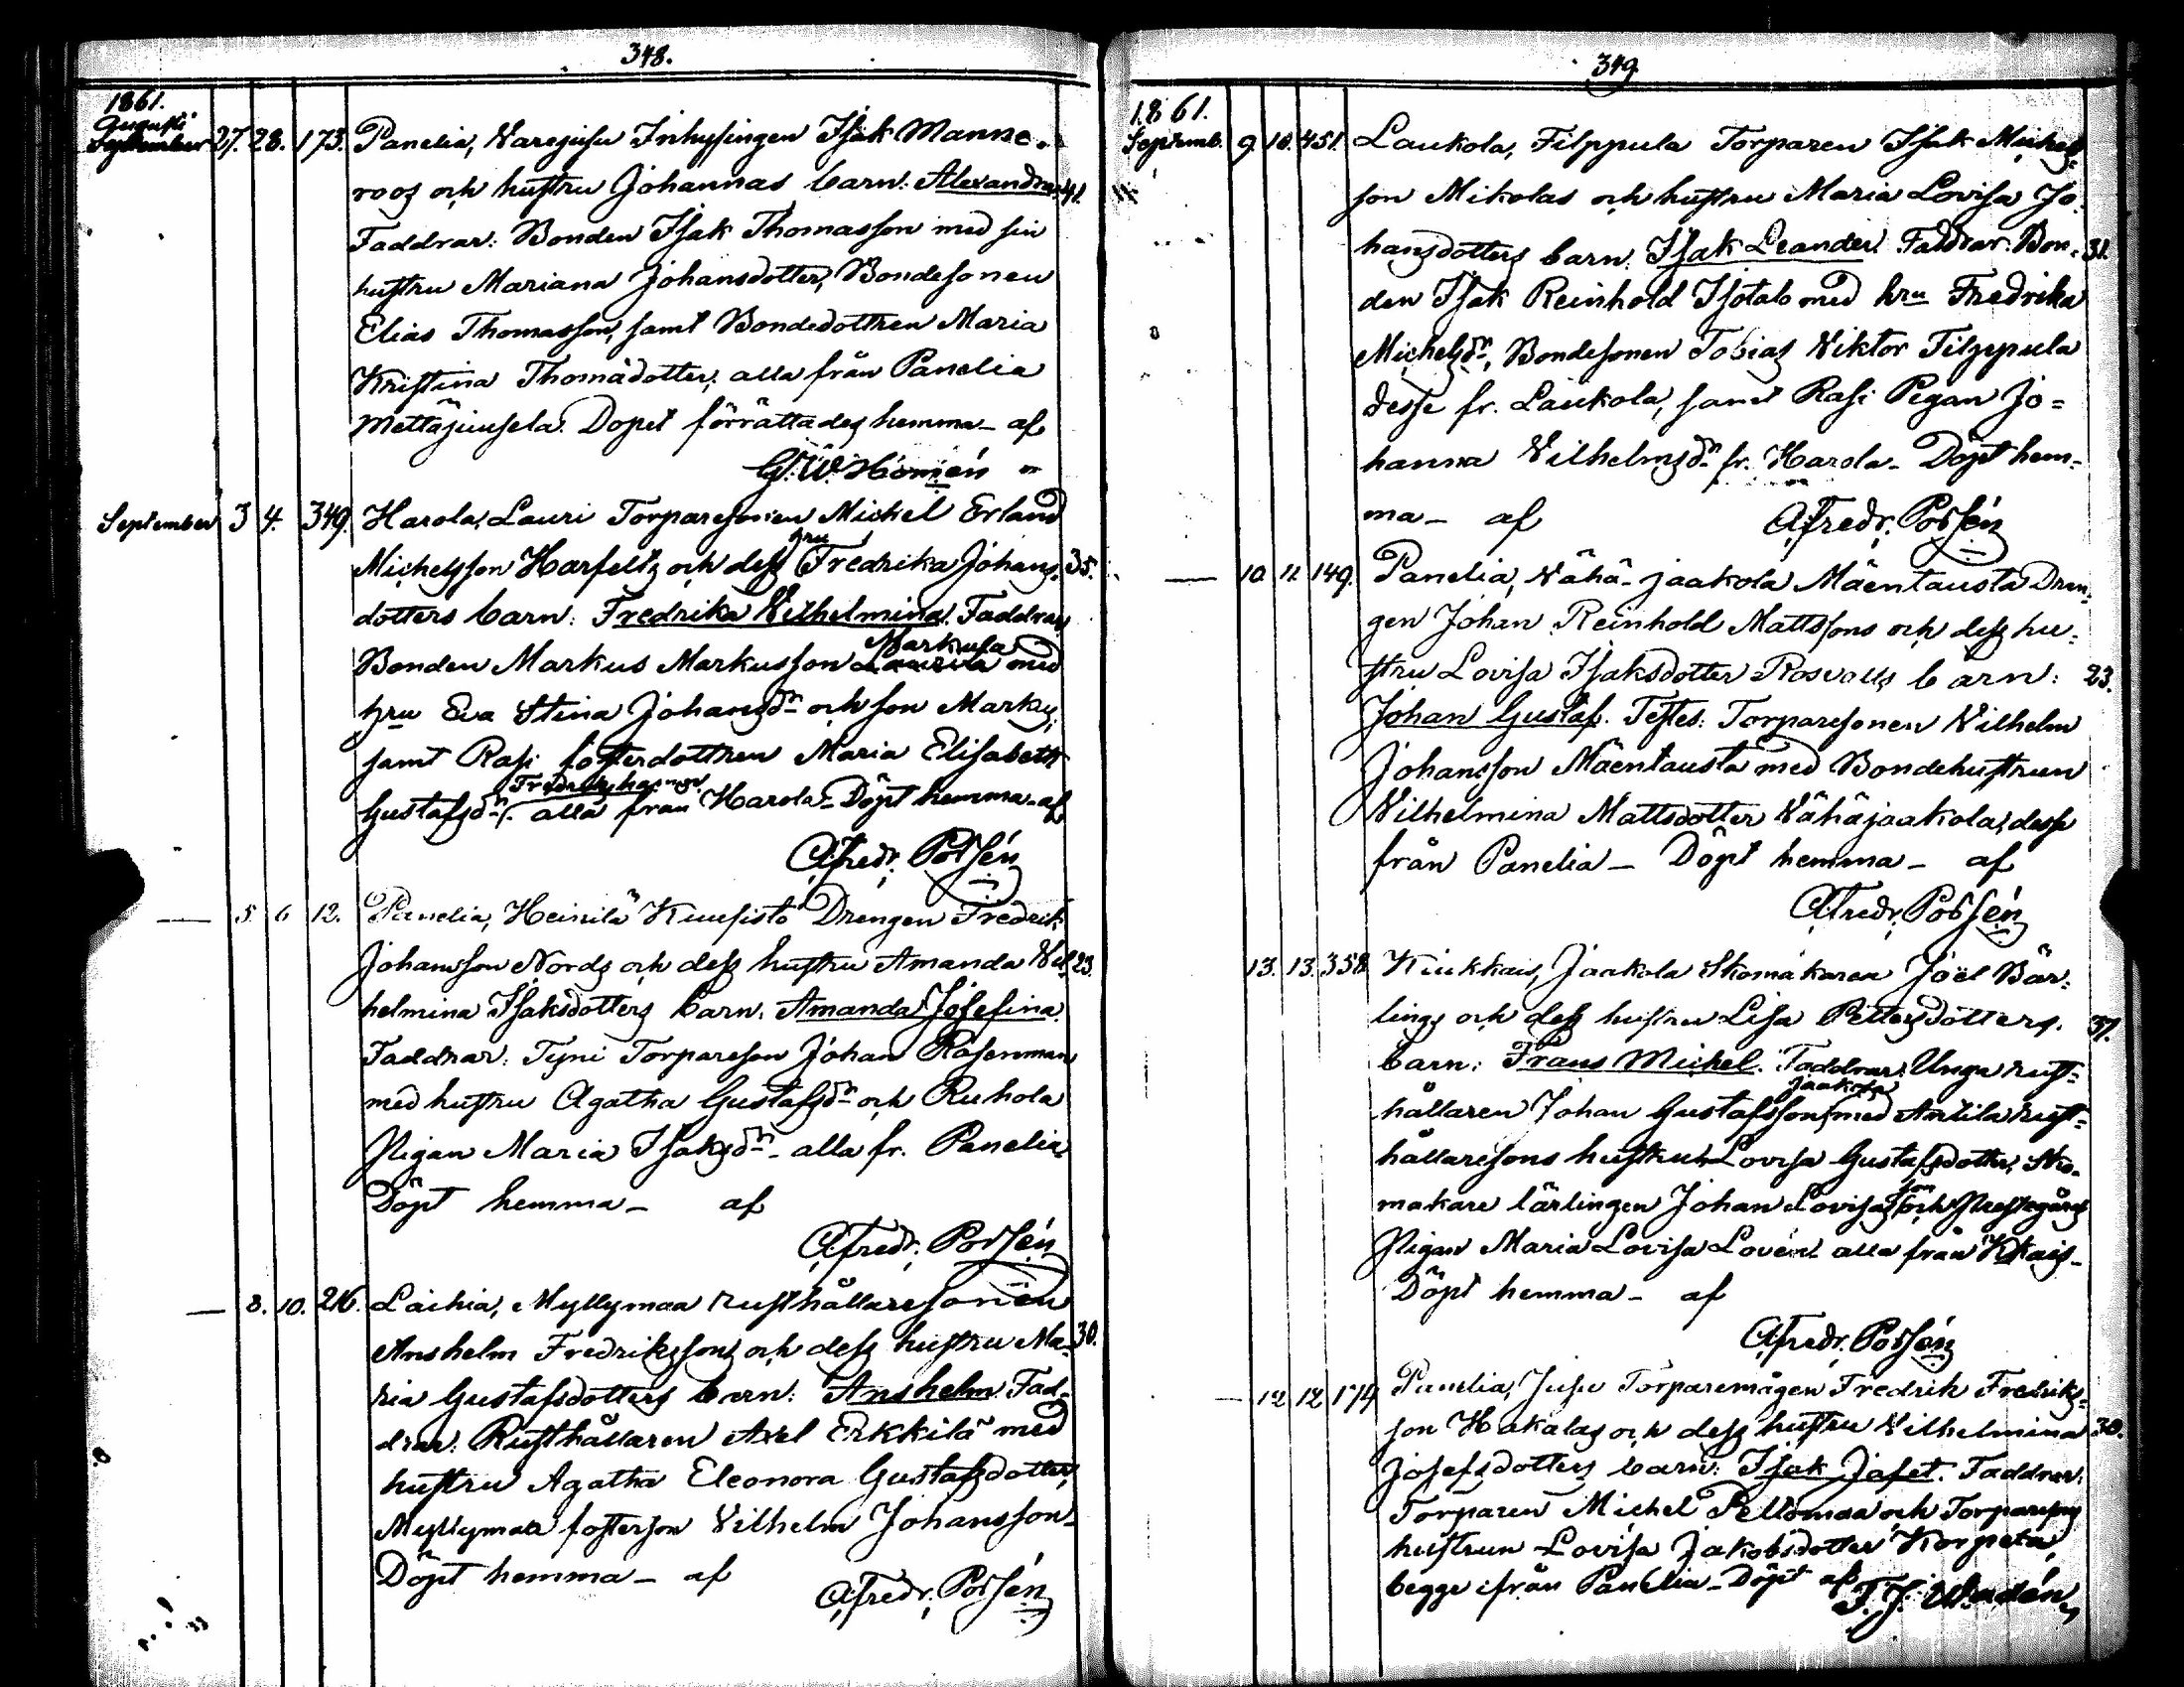 348.
1861.
Augusti
September 27. 28. 173. Panelia, Varejusu Inhysingen Isak Manne-
roos och hustru Johannas barn: Alexandra. 41.
Faddrar: Bonden Isak Thomasson med sin
hustru Mariana Johansdotter, Bondesonen
Elias Thomasson, samt Bondedottren Maria
Kristina Thomädotter, alla från Panelia
Mettäjuusela. Dopet förrättades hemma - af
G. W. Homén
September 3 4. 349. Harola, Lauri Torparesonen Michel Erland
Michelsson Harfelts och dess hru Fredrika Johans- 35.
dotters barn: Fredrika Vilhelmina. Faddrar
Bonden Markus Markusson Markula med
hru Eva Stina Johansdr och son Markus,
samt Rasi fosterdottren Maria Elisabeth
Gustafsdr. alla från Harola - Döpt hemma - af
Afredr. Polsén
— 5 6 12. Panelia, Heinilä Kuusisto Drengen Fredrik
Johansson Nords och dess hustru Amanda Vil- 23.
helmina Isaksdotters barn: Amanda Josefina.
Faddrar: Tyni Torpareson Johan Rosenman
med hustru Agatha Gustafsdr och Ruhola
Pigan Maria Isaksdr - alla fr. Panelia
Döpt hemma - af
Afredr. Polsén
— 8. 10. 216. Laihia, Myllymaa rusthållaresonen
Anshelm Fredrikssons och dess hustru Ma- 30.
ria Gustafsdotters barn: Anshelm. Fad-
drar: Rusthållaren Axel Erkkilä med
hustru Agatha Eleonora Gustafsdotter,
Myllymaa fosterson Vilhelm Johansson -
Döpt hemma - af
Afredr. Polsén
349
1861.
Septemb. 9. 10. 451. Laukola, Filppula Torparen Isak Michels-
son Mikolas och hustru Maria Lovisa Jo-
hansdotters barn: Isak Leander. Faddrar: Bon- 31.
den Isak Reinhold Isotalo med hru Fredrika
Michelsdr, Bondesonen Tobias Viktor Filppula
desse fr. Laukola, samt Rasi Pigan Jo=
hanna Vilhelmsdr fr. Harola - Döpt hem-
ma - af Afredr. Polsén
— 10 11 149. Panelia, Vähä-jaakola Mäentausta Dren-
gen Johan Reinhold Mattssons och dess hu-
stru Lovisa Isaksdotter Rosvalls barn: 23.
Johan Gustaf. Testes: Torparesonen Vilhelm
Johansson Mäentausta med Bondehustrun
Vilhelmina Mattsdotter Vähäjaakola, desse
från Panelia - Döpt hemma - af
Afredr. Polsén
13. 13. 358 Kiukkais, Jaakola Skomakaren Joël Bär-
lings och dess hustru Lisa Pettersdotters. 37.
barn: Frans Michel. Faddrar: Unga rust-
hållaren Johan Gustafsson Jaakola med Anttila rust-
hållaresons hustrun Lovisa Gustafsdotter, Sko-
makare lärlingen Johan Lovisas son och Prestegårds
Pigan Maria Lovisa Lovén alla från Kkais -
Döpt hemma - af
Afredr. Polsén
— 12 12 174 Panelia, Jusu Torparemågen Fredrik Fredriks-
son Hakalas och dess hustru Vilhelmina 30.
Josefsdotters barn: Isak Jafet. Faddrar:
Torparen Michel Peltomaa och Torpares
hustrun Lovisa Jakobsdotter Korpela,
begge ifrån Panelia - Döpt af